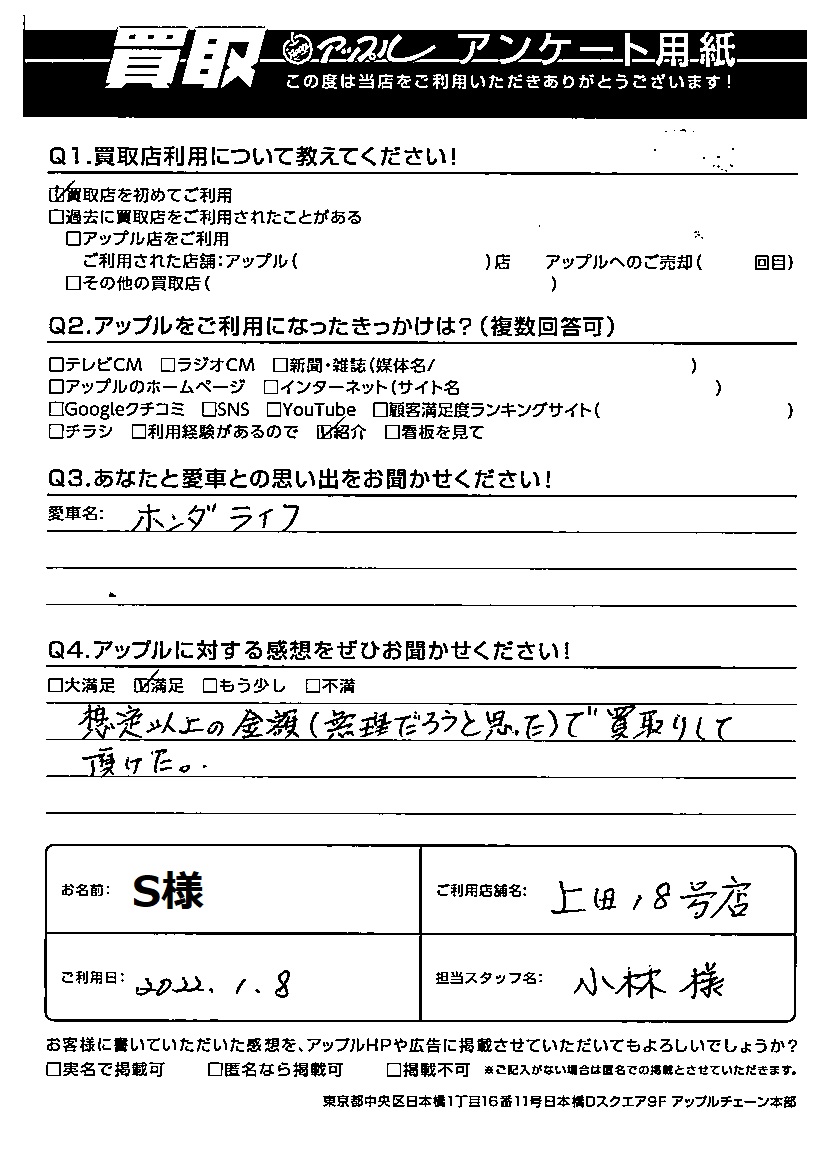 買取 アップル アンケート用紙
この度は当店をご利用いただきありがとうございます!
Q1.買取店利用について教えてください!
☑買取店を初めてご利用
□過去に買取店をご利用されたことがある
□アップル店をご利用
ご利用された店舗:アップル( )店 アップルへのご売却( 回目)
□その他の買取店( )
Q2.アップルをご利用になったきっかけは?(複数回答可)
□テレビCM □ラジオCM □新聞・雑誌(媒体名/ )
□アップルのホームページ □インターネット(サイト名 )
□Googleクチコミ □SNS □YouTube □顧客満足度ランキングサイト( )
□チラシ □利用経験があるので ☑紹介 □看板を見て
Q3.あなたと愛車との思い出をお聞かせください!
愛車名: ホンダ ライフ
Q4.アップルに対する感想をぜひお聞かせください!
□大満足 ☑満足 □もう少し □不満
想定以上の金額(無理だろうと思った)で買取りして
頂けた。
お名前: S様 ご利用店舗名: 上田18号店
ご利用日: 2022.1.8 担当スタッフ名: 小林 様
お客様に書いていただいた感想を、アップルHPや広告に掲載させていただいてもよろしいでしょうか?
□実名で掲載可 □匿名なら掲載可 □掲載不可 ※ご記入がない場合は匿名での掲載とさせていただきます。
東京都中央区日本橋1丁目16番11号日本橋Dスクエア9F アップルチェーン本部